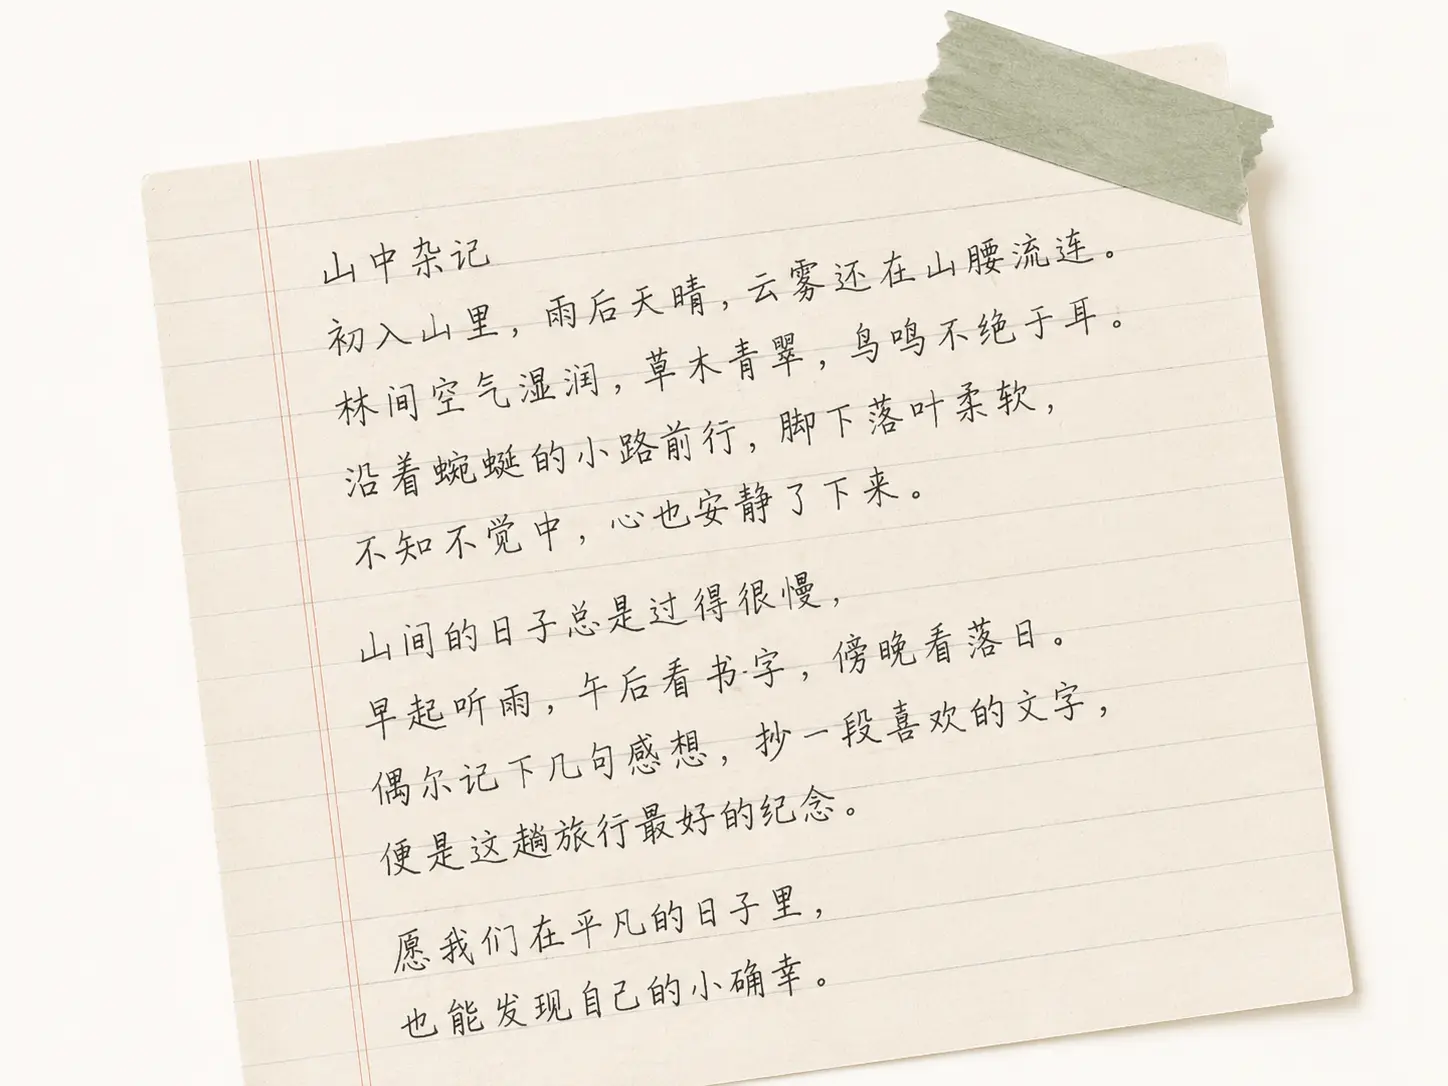 山中杂记
初入山里，雨后天晴，云雾还在山腰流连。
林间空气湿润，草木青翠，鸟鸣不绝于耳。
沿着蜿蜒的小路前行，脚下落叶柔软，
不知不觉中，心也安静了下来。
山间的日子总是过得很慢，
早起听雨，午后看书·字，傍晚看落日。
偶尔记下几句感想，抄一段喜欢的文字，
便是这趟旅行最好的纪念。
愿我们在平凡的日子里，
也能发现自己的小确幸。